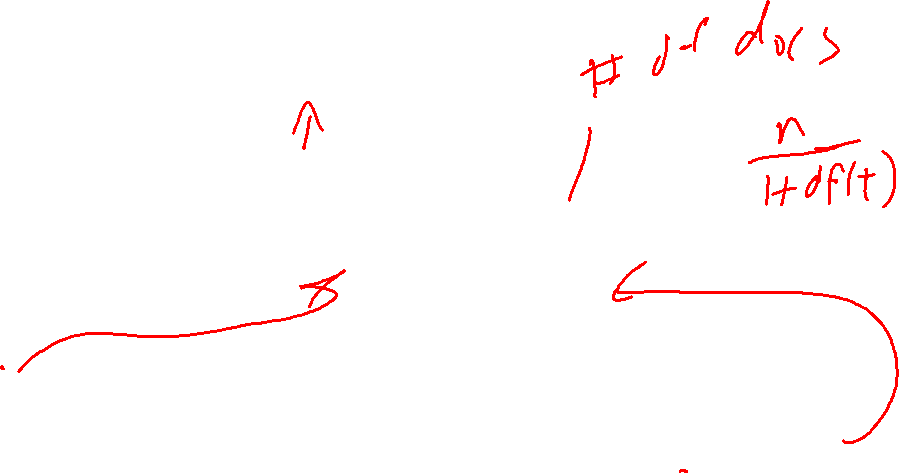 # of docs
n
1+df(t)